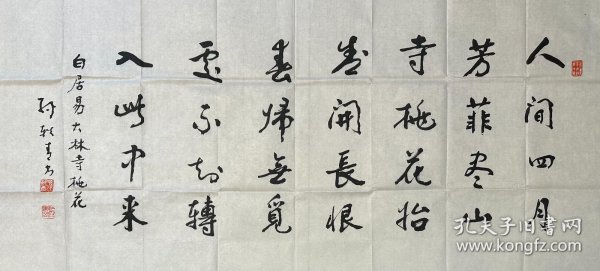 人间四月
芳菲尽山
寺桃花始
盛開長恨
春歸無覓
處不知轉
入此中来
白居易大林寺桃花
孔夫子旧书网
www.kongfz.com